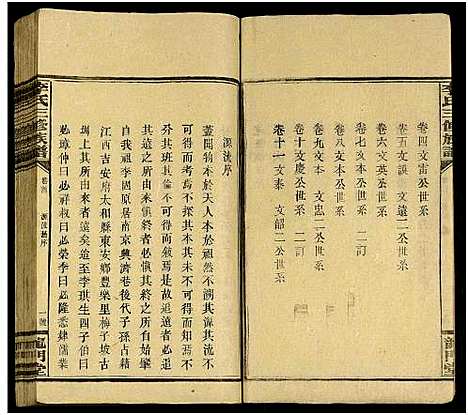 李氏三修族譜
卷四文雷公世系
卷五文謨 文遠二公世系
卷六文英公世系
卷七亥文本公世系 二訂
卷九文本 文忠二公世系
卷十文慶公世系 二訂
卷十一文泰 文韶二公世系
龍門堂
源流序
蓋聞物本於天人本於祖然不溯其源其流不
可得而考不尋其本其末不可得而知
非其班其倫不可得而敘焉是故追遠者必
其遠之所自來慎終者必慎其終之所自有始肇
自我祖李國原居南京興濟巷後代子孫占籍
江西吉安府太和縣東安鄉豐樂里梅子坡古
來無論遠者遠矣追至李琪生四子伯曰
必璋仲曰必祥叔曰必榮季曰必隆悉肄儒業
李氏三修族譜
源流總序
龍門堂